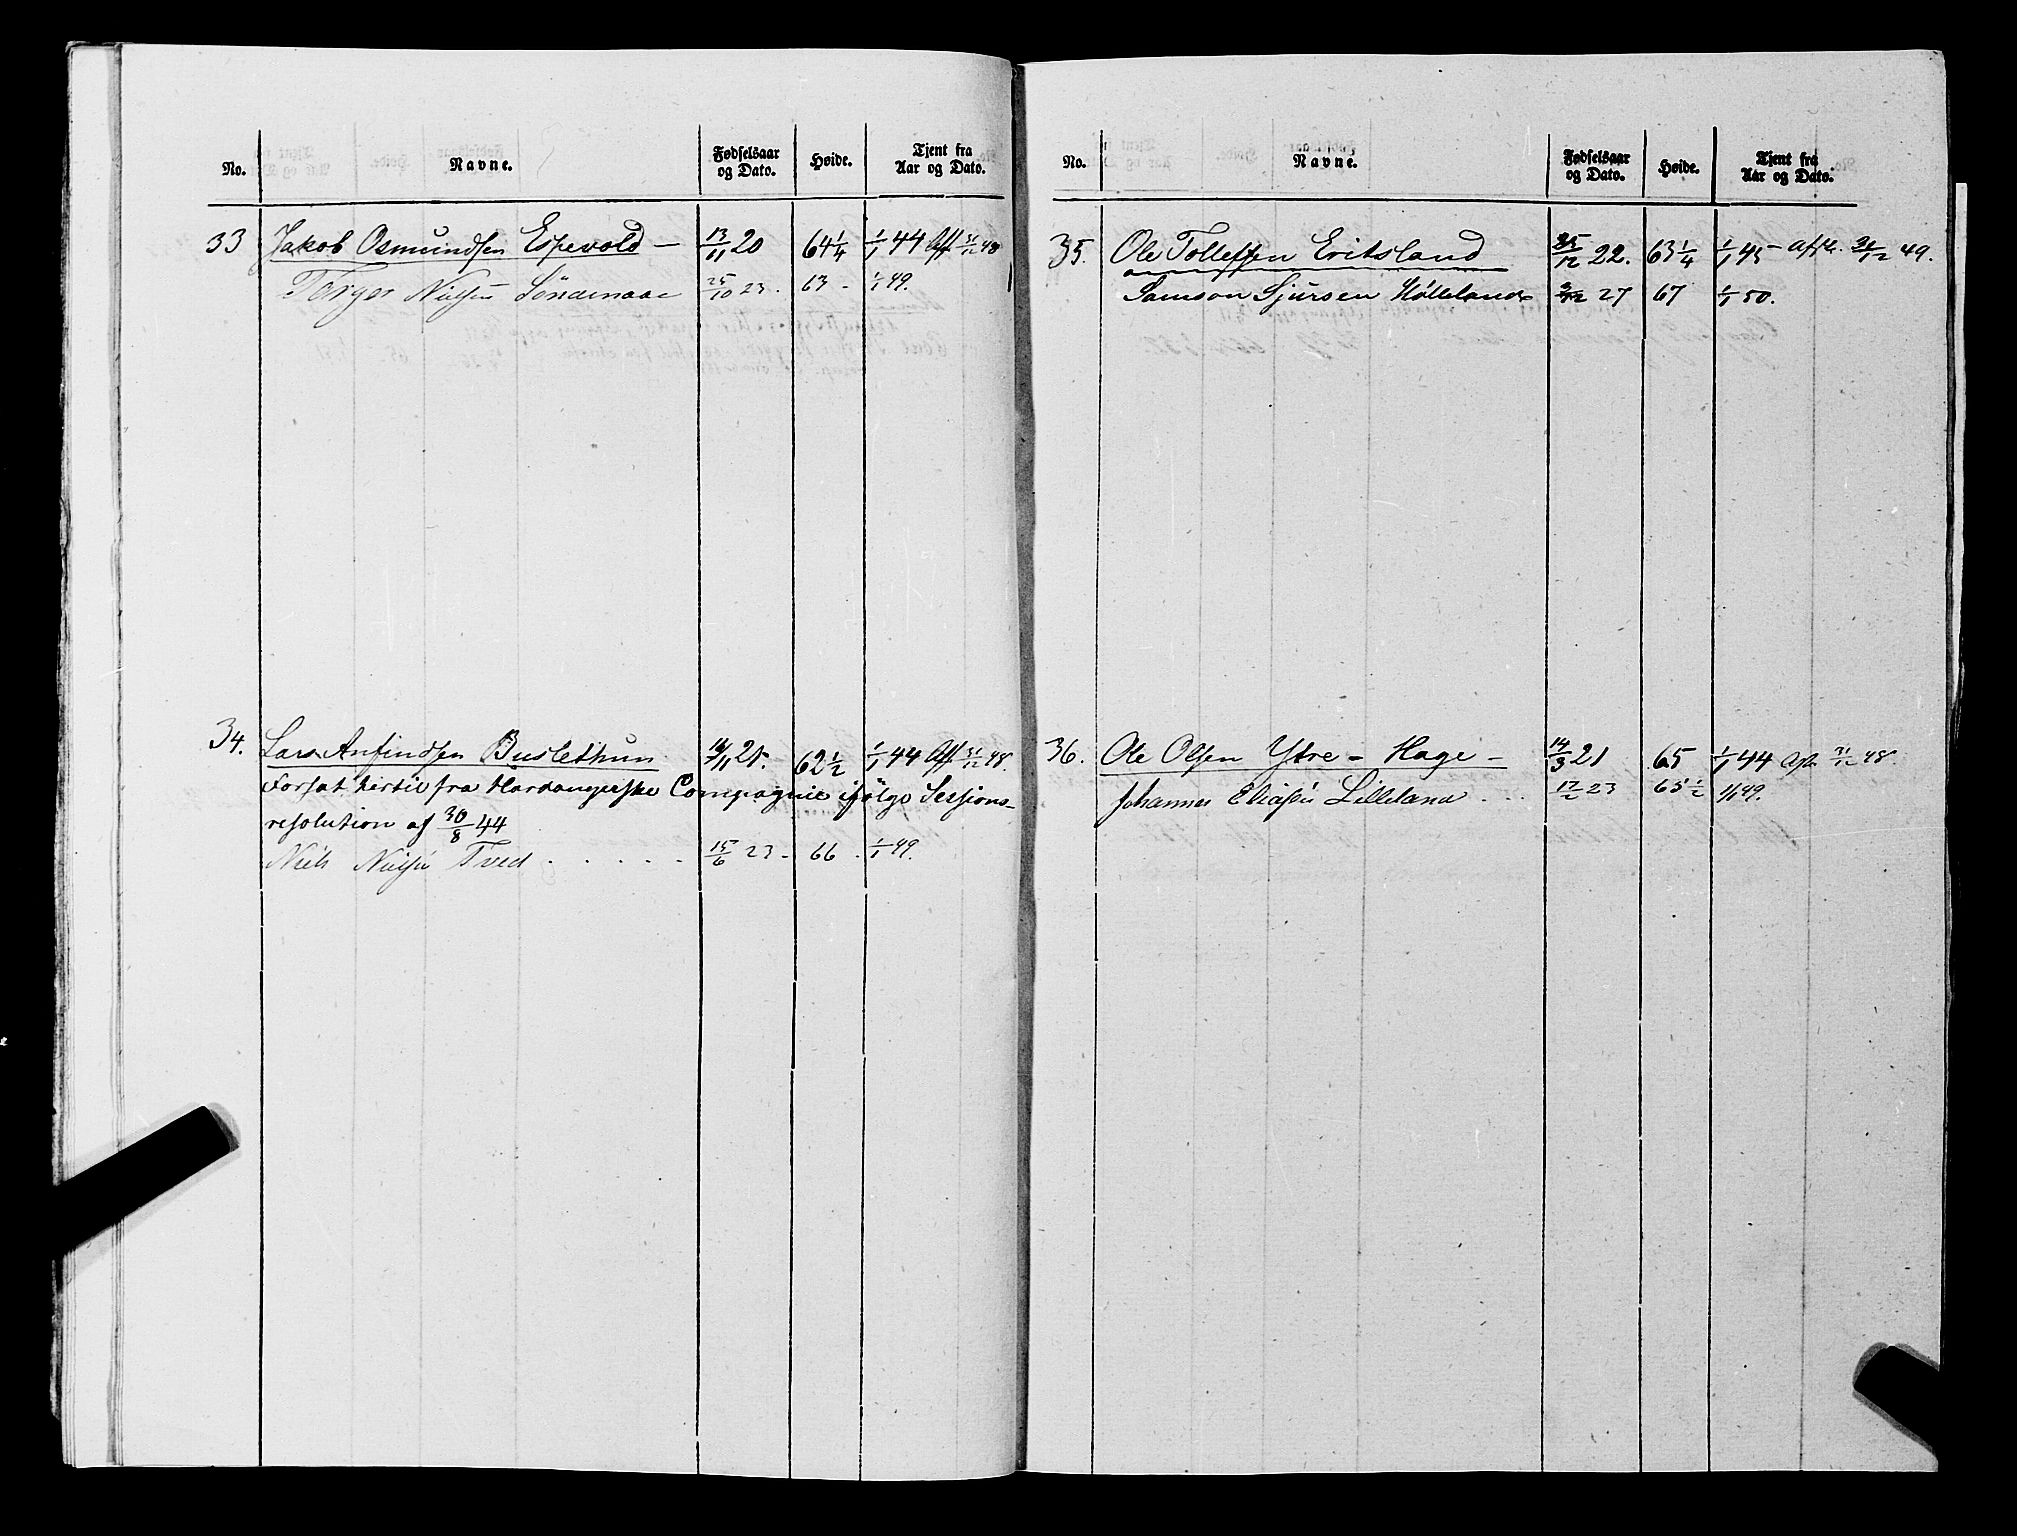 No. Navne. Fødselsaar og Dato. Høide. Tjent fra Aar og Dato.
33 Jakob Osmundsen Espevold — 13/11 20 64 1/4 1/1 44 Aff 31/12 48
Torger Nielsen 25/10 23. 63 - 1/1 49.
34. Lars Anfindsen Buslethun 21. 62 1/2 1/1 44 Aff 31/12 48.
Forsat hertil fra Hardangerske Compagnie ifølge Sessions-
resolution af 30/8 44
Niels Nielsen Tved . . . . . 15/6 23 - 66 - 1/1 49.
No. Navne. Fødselsaar og Dato. Høide. Tjent fra Aar og Dato.
35. Ole Tollefsen Eritsland 25/12 22. 63 1/4 1/1 45 - 31/12 49.
Samson Sjursen Hølleland 27 67 1/1 50.
36. Ole Olsen Ytre - Hage - 14/3 21 65 1/1 44 31/12 48.
Johannes Eliasen Lilleland . . . 17/2 23 65 1/2 1/1 49.